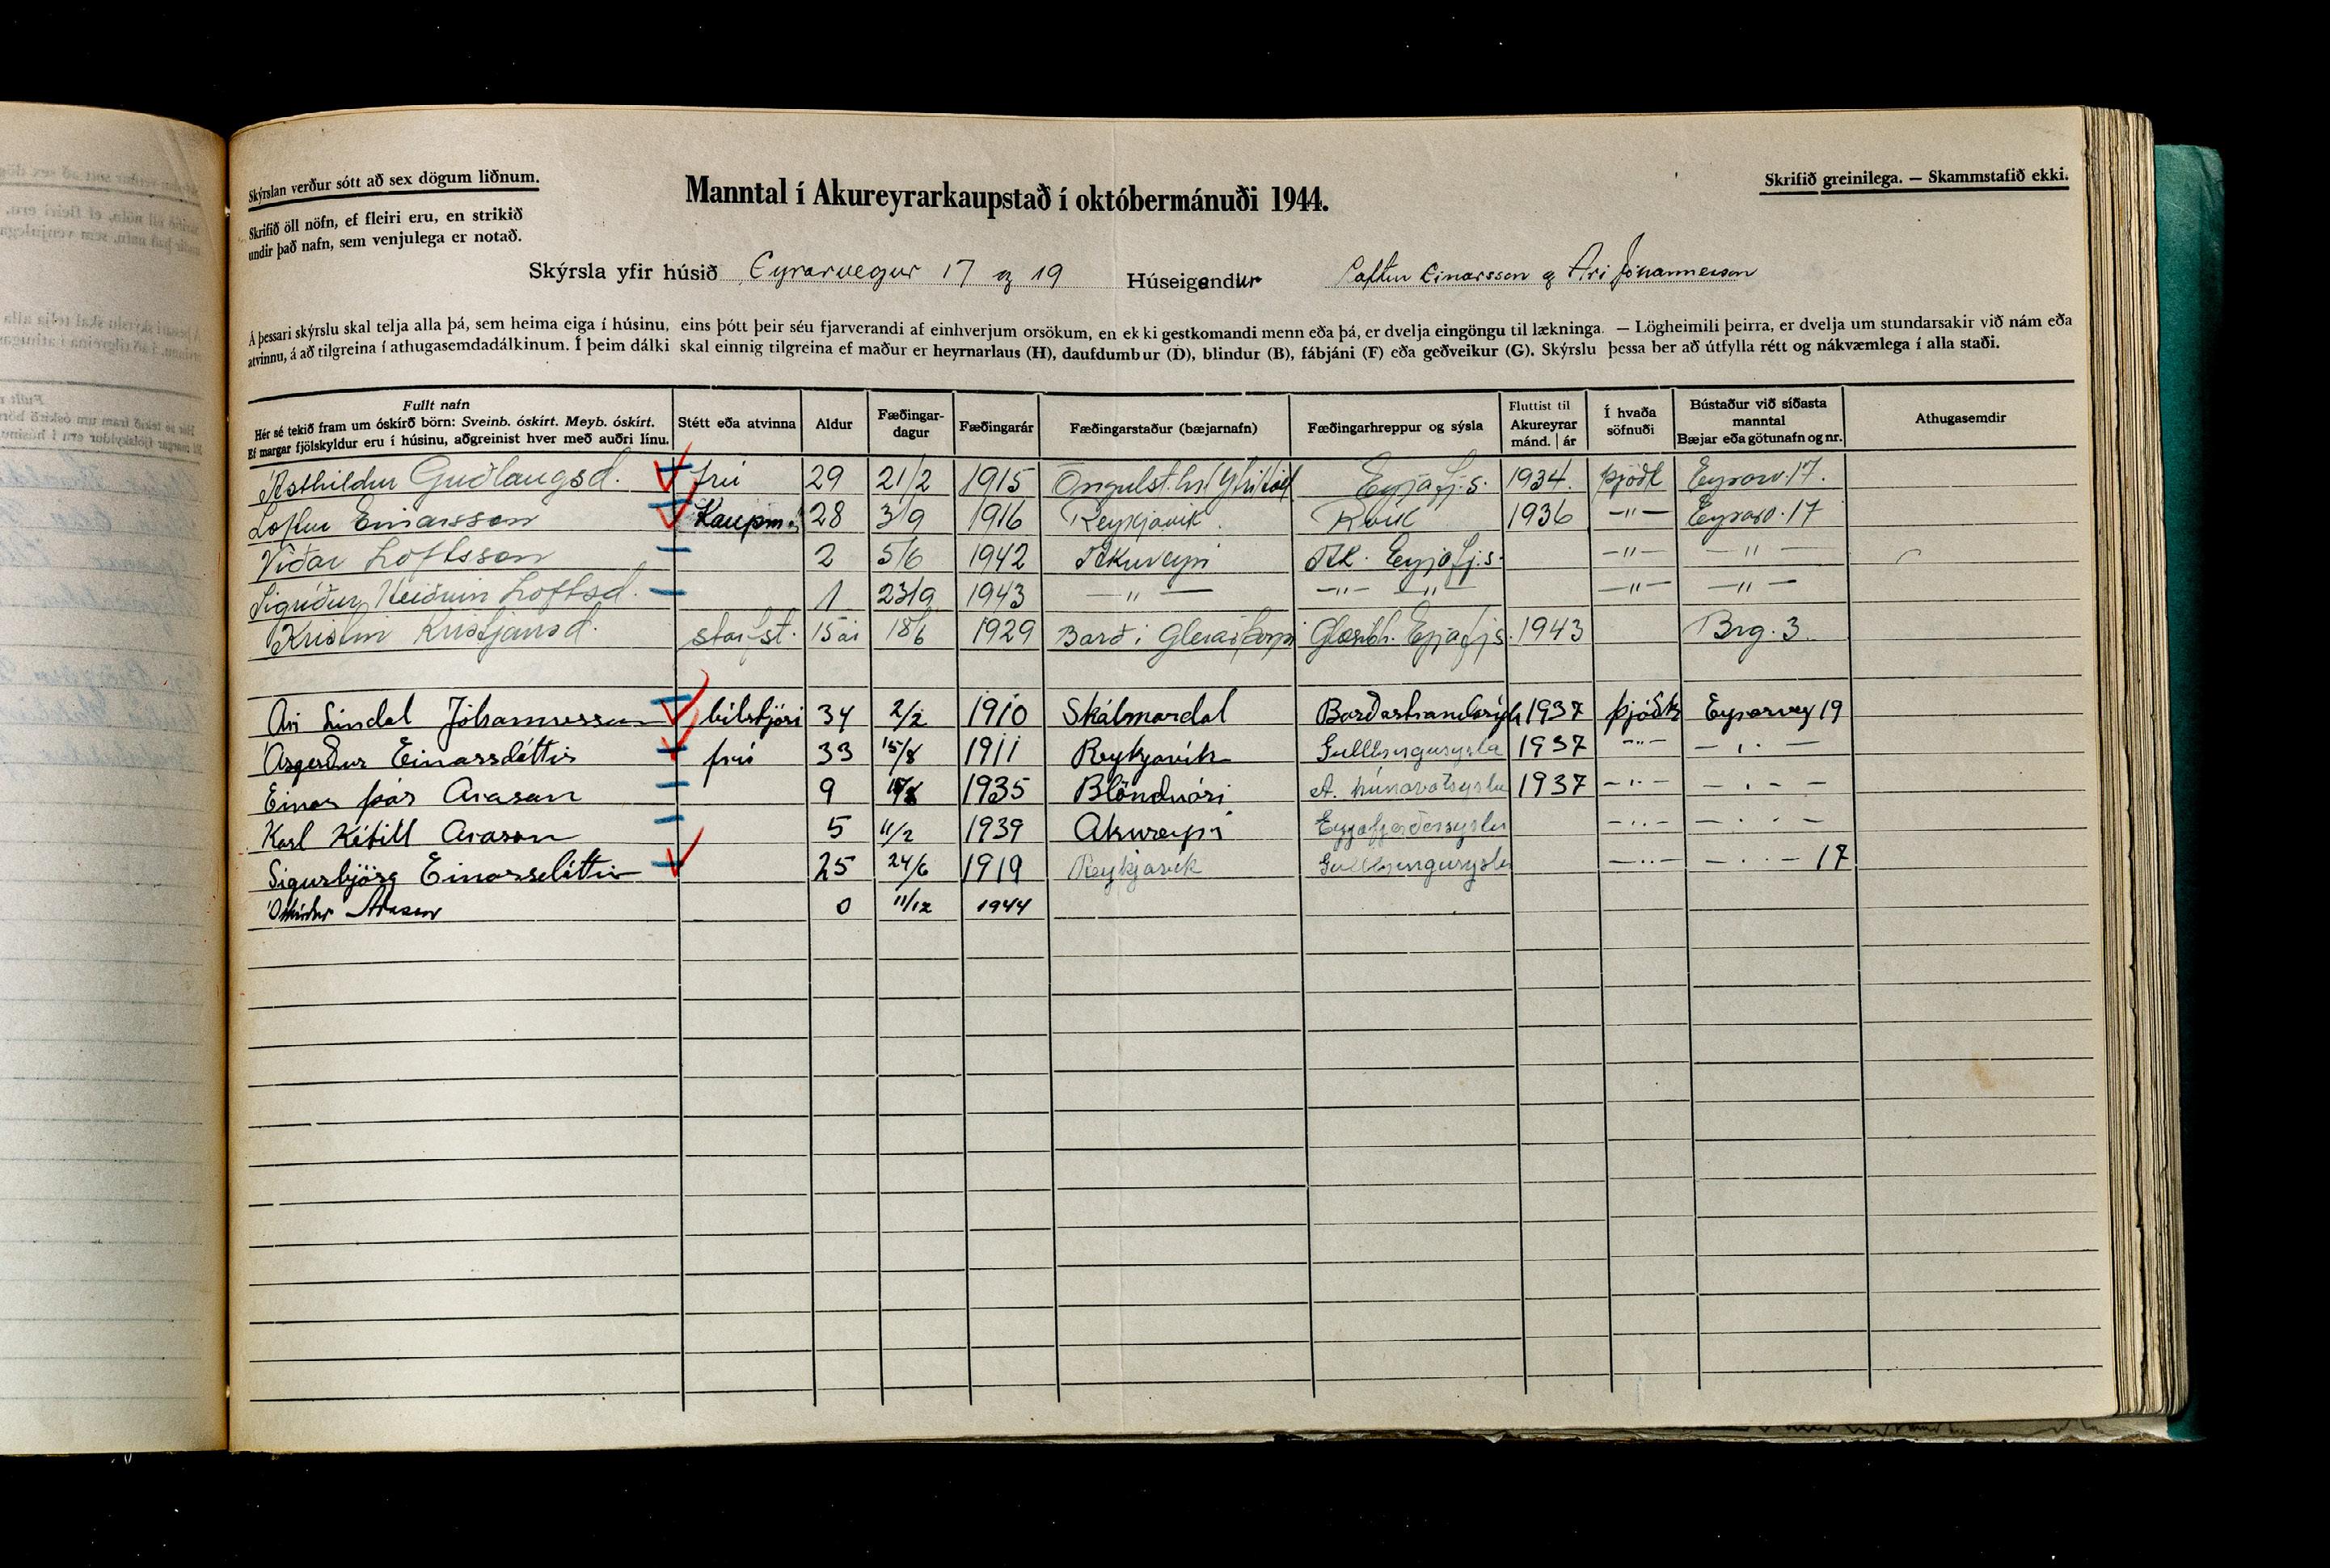 Skýrslan verður sótt að sex dögum liðnum.
Manntal í Akureyrarkaupstað í októbermánuði 1944.
Skrifið greinilega. — Skammstafið ekki.
Skrifið öll nöfn, ef fleiri eru, en strikið
undir það nafn, sem venjulega er notað.
Skýrsla yfir húsið Eyrarvegur 17 og 19 Húseigendur Loftur Einarsson og Ari Jóhannesson
Á þessari skýrslu skal telja alla þá, sem heima eiga í húsinu, eins þótt þeir séu fjarverandi af einhverjum orsökum, en ekki gestkomandi menn eða þá, er dvelja eingöngu til lækninga. — Lögheimili þeirra, er dvelja um stundarsakir við nám eða
atvinnu, á að tilgreina í athugasemdadálkinum. Í þeim dálki skal einnig tilgreina ef maður er heyrnarlaus (H), daufdumbur (D), blindur (B), fábjáni (F) eða geðveikur (G). Skýrslu þessa ber að útfylla rétt og nákvæmlega í alla staði.
Fullt nafn
Hér sé tekið fram um óskírð börn: Sveinb. óskírt. Meyb. óskírt.
Ef margar fjölskyldur eru í húsinu, aðgreinist hver með auðri línu.
Stétt eða atvinna
Aldur
Fæðingar-
dagur
Fæðingarár
Fæðingarstaður (bæjarnafn)
Fæðingarhreppur og sýsla
Fluttist til
Akureyrar
mánd. | ár
Í hvaða
söfnuði
Bústaður við síðasta
manntal
Bæjar eða götunafn og nr.
Athugasemdir
Ásthildur Guðlaugsd. frú 29 21/2 1915 Öngulst.hr. Eyjafj.s. 1934. þjóðk Eyrarv. 17.
Loftur Einarsson Kaupm. 28 3/9 1916 Reykjavík. Rvík 1936 —"— Eyrarv. 17
Viðar Loftsson 2 5/6 1942 Akureyri Ak. Eyjafj.s. —"— —"—
Sigríður Heiðrún Loftsd. 1 23/9 1943 —"— —"— —"— —"— —"—
Kristín Kristjánsd. starfst. 15 ár 18/6 1929 Barð í Glerárþorpi Glæsibh. Eyjafjs. 1943 Brg. 3.
Ari Líndal Jóhannesson bílstjóri 34 2/2 1910 Skálmardal Barðastrandarsýsl. 1937 þjóðk Eyrarveg 19
Ásgerður Einarsdóttir frú 33 15/8 1911 Reykjavík Gullbringusýsla 1937 —"— — . —
Einar Þór Arason 9 1935 Blönduósi A. húnavatssýslu 1937 —"— — . —
Karl Ketill Arason 5 11/2 1939 Akureyri Eyjafjarðarsýslu —"— — . —
Sigurbjörg Einarsdóttir 25 24/6 1919 Reykjavík Gullbringusýslu —"— — . — 17
Óskírður Arason 0 11/12 1944